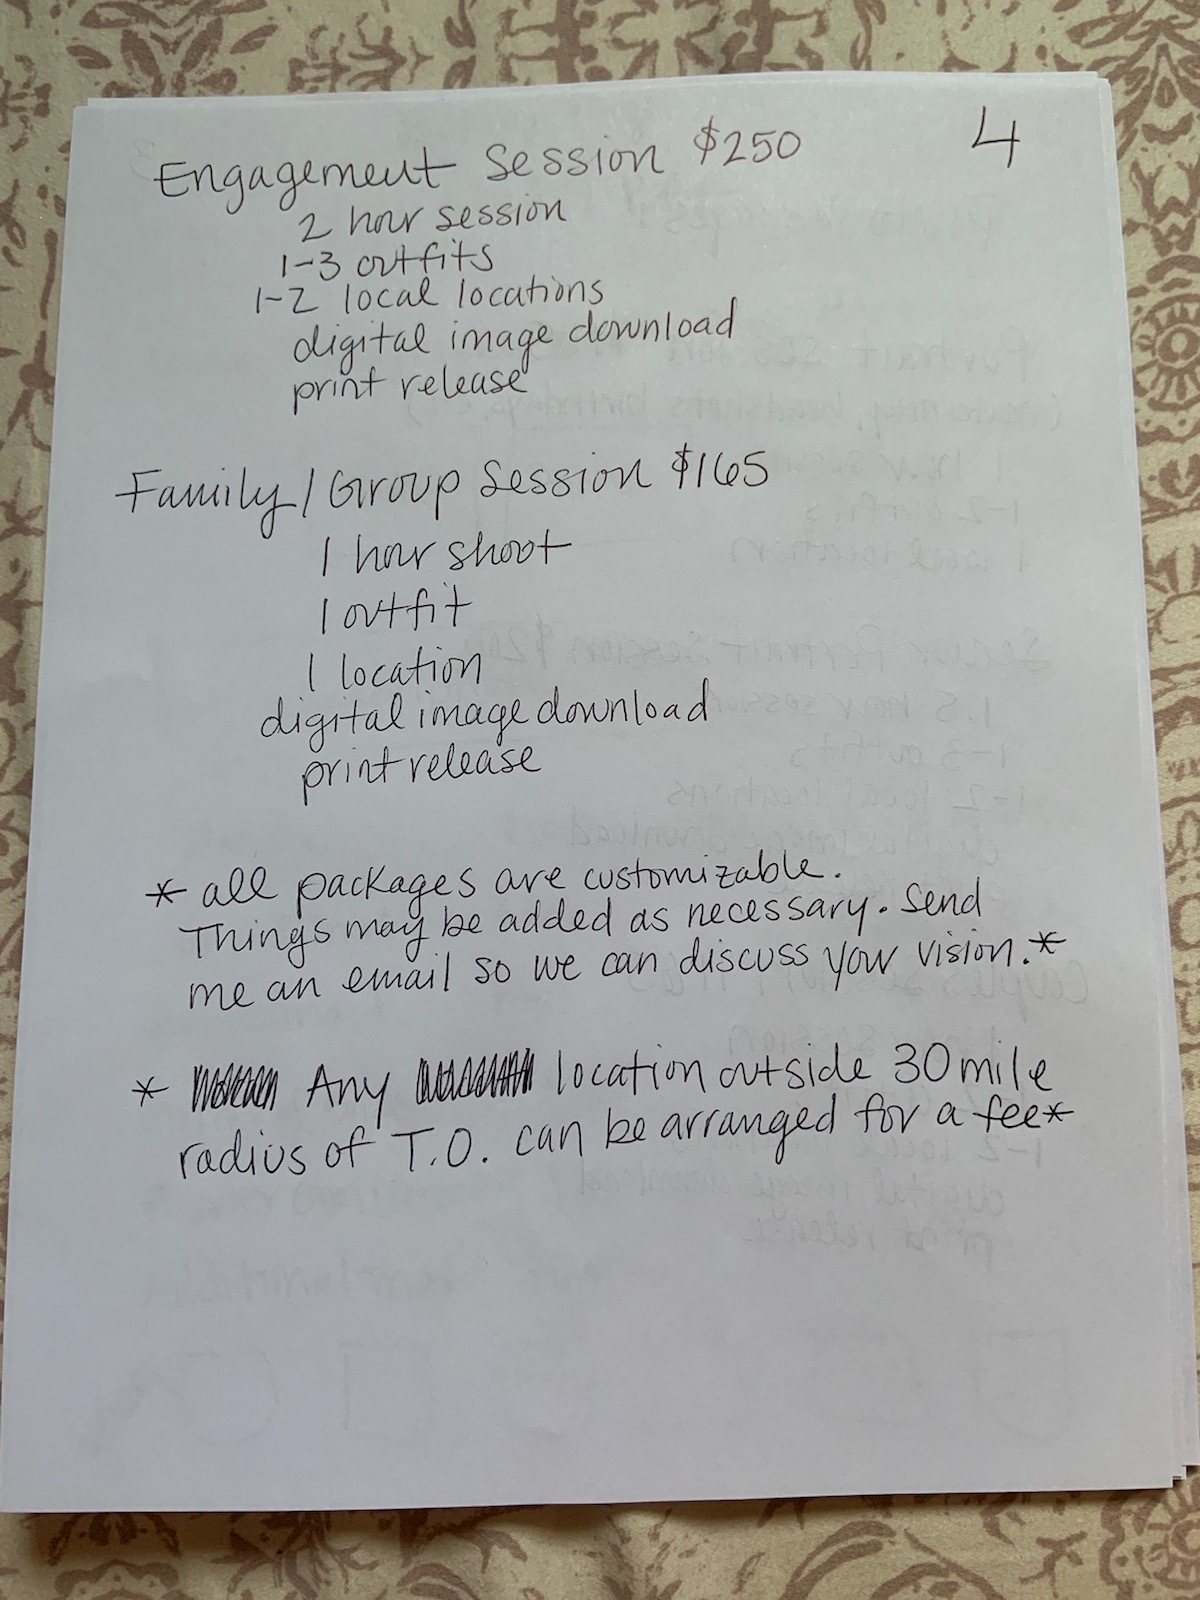 4
Engagement Session $250
2 hour session
1-3 outfits
1-2 local locations
digital image download
print release
Family/Group Session $165
1 hour shoot
1 outfit
1 location
digital image download
print release
* all packages are customizable.
Things may be added as necessary. Send
me an email so we can discuss your vision.*
* Any location outside 30 mile
radius of T.O. can be arranged for a fee*